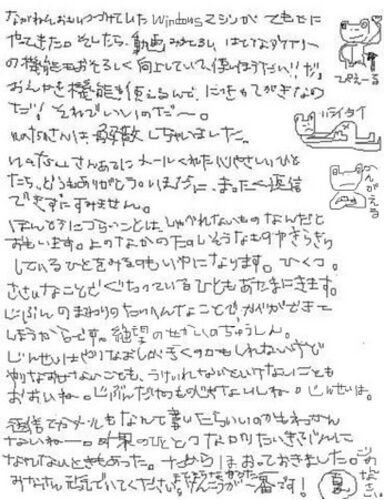 ながねんおもいつづけていたWindowsマシンが てもとに
やってきた。そしたら、動画みたろし はてなダイアリー
の機能もおそろしく向上していて、使いほうだい!!だ。
おえかき機能も使えるんで、にっきもてがきなの
だ! それでいいのだ〜。
さんは、解散しちゃいました。
さんあてに メールくれた心やさしいひと
たち、どうもありがとう。いまだに、まったく返信
できずにすみません。
ほんとうにつらいことは、しゃべれないものなんだと
おもいます。上のなかのたのしそうなものやきらきら
しているひとをみるのもいやになります。ひくつ。
ささいなことでぐちっているひともあたまにきます。
じぶんのまわりのたいへんなことで、かべができて
しまうからです。絶望のせかいのちゅうしん。
じんせいはやりなおしがきくのかもしれない
やりなおせないことも、うけいれないといけないことも
おおいねー。じぶんだけのものじゃないしね。じんせいは。
返信でかメールもなんて書いたらいいのかもわかん
ないねー。
なれないときもあった。だからほおっておきました。ごめん
みなさん元気でいてください。けんこうが一番です!
ぴえ〜る
バライタイ
かんがえる
夏